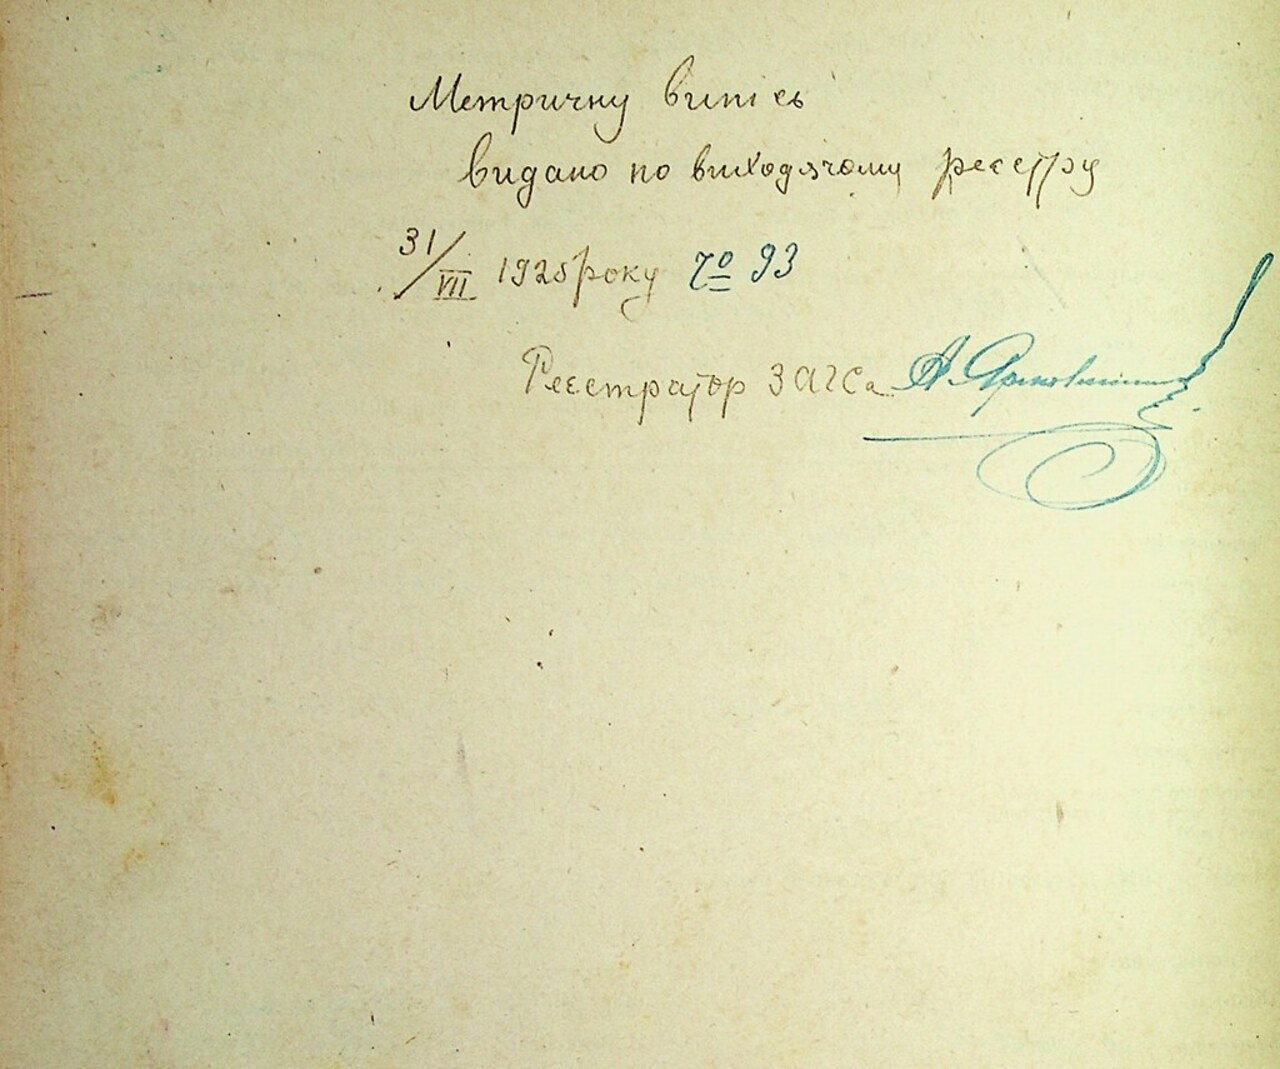 Метричну випісь
видано по виходячому реєстру
31/VII 1925 року № 93
Реєстратор ЗАГСа А.